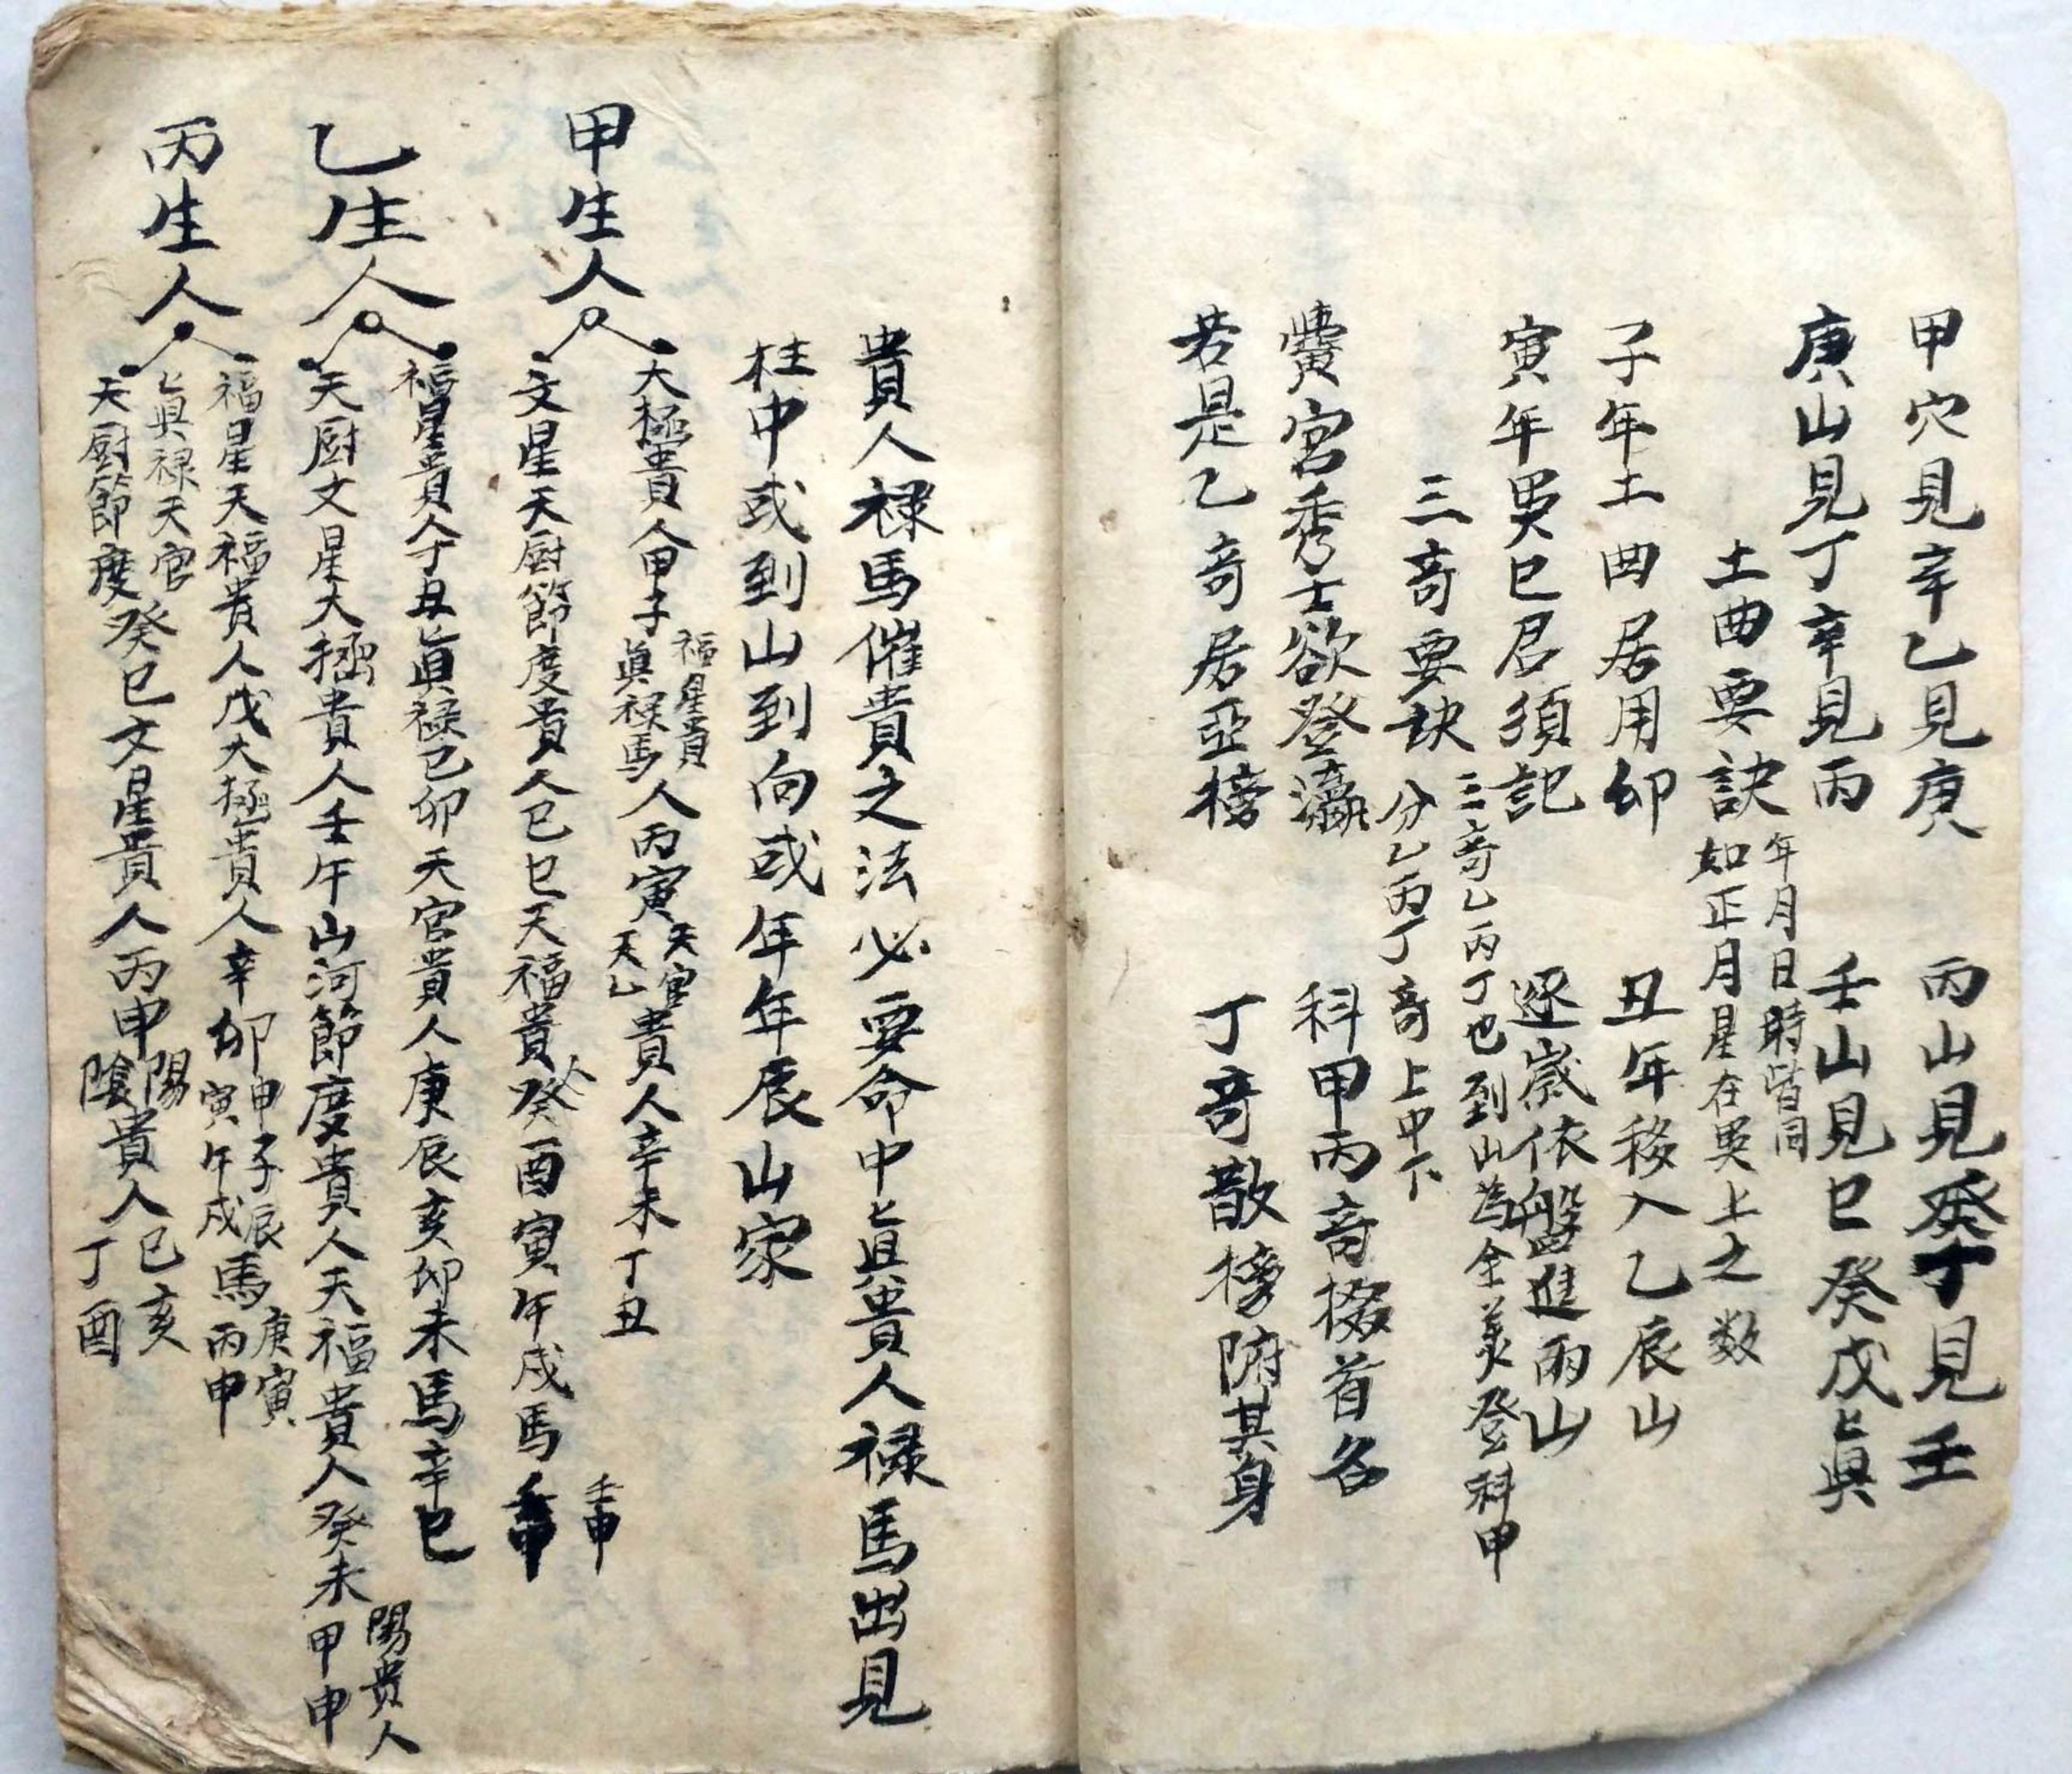 甲穴見辛乙見庚　丙山見癸丁見壬
庚山見丁辛見丙　壬山見巳癸戊上真
土曲要訣 年月日時皆同
如正月星在巽上之数
子年土曲居用卯　丑年移入乙辰山
寅年巽巳君須記　逐嵗依盤進兩山
三竒要訣 三竒乙丙丁也到山為全美登科甲
分乙丙丁竒上中下
黌宮秀士欲登瀛　科甲丙竒掇首名
若是乙竒居亞榜　丁竒散榜附其身
貴人禄馬催貴之法必要命中上真貴人禄馬出見
柱中或到山到向或年年辰山家
甲生人
大極貴人甲子 福星貴
真禄馬 人丙寅 天官
天乙 貴人辛未丁丑
文星天厨節度貴人己巳天福貴人癸酉寅午戌馬壬申
壬申
乙生人
福星貴人丁丑上真禄己卯天官貴人庚辰亥卯未馬辛巳
天厨文星大極貴人壬午山河節度貴人天福貴人癸未甲申 陽貴人
丙生人
福星天福貴人戊大極貴人辛卯 甲子辰
寅午戌 馬 庚寅
丙申
上真禄天官
天厨節度 癸巳文星貴人丙申 陽
陰 貴人 己亥
丁酉